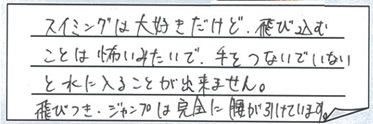 スイミングは大好きだけど、飛び込む
ことは怖いみたいで、手をつないでいない
と水に入ることが出来ません。
飛びつき・ジャンプは完全に腰が引けています。